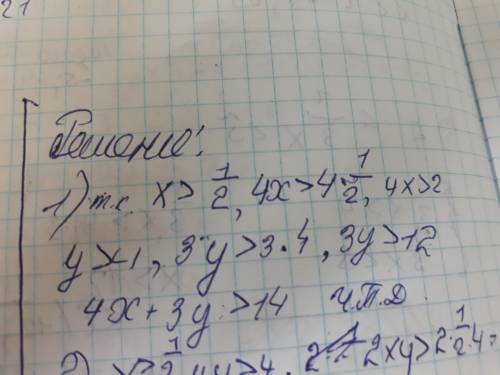 21
Решение:
1) т.к. x > 1/2, 4x > 4·1/2, 4x > 2
y > 4, 3·y > 3·4, 3y > 12
4x + 3y > 14 Ч.Т.Д.
2) x > 1/2, y > 4, 2xy > 2·1/2·4 =